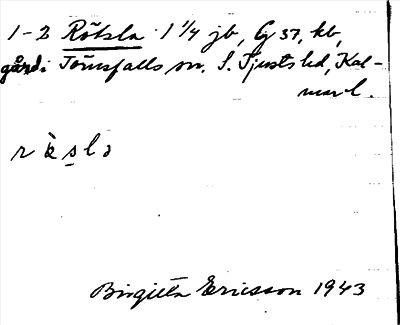 1-2 Rötsla 1 1/4 jb, G 37, kb,
gård i Törnsfalls sn. S. Tjusts hd, Kal-
mar l.
Birgitta Ericsson 1943